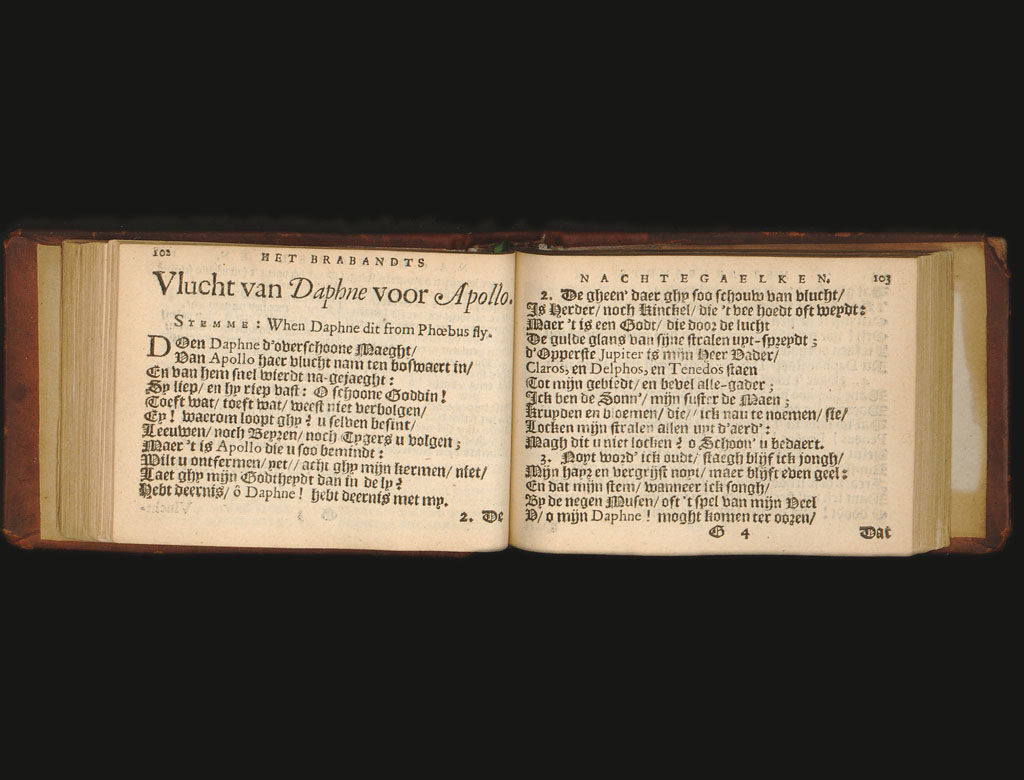 102
HET BRABANDTS
Vlucht van Daphne voor Apollo.
STEMME: When Daphne dit from Phœbus fly.
DOen Daphne d'overschoone Maeght/
Van Apollo haer vlucht nam ten boswaert in/
En van hem snel wierdt na-gejaeght:
Sy liep/ en hy riep vast: O schoone Goddin!
Toeft wat/ toeft wat/ weest niet verbolgen/
Ey! waerom loopt ghy? u selven besint/
Leeuwen/ noch Beyren/ noch Tygers u volgen;
Maer 't is Apollo die u soo bemindt:
Wilt u ontfermen/ yet// acht ghy mijn kermen/ niet/
Laet ghy mijn Godtheydt dan in de ly?
Hebt deernis/ ô Daphne! hebt deernis met my.
2. De
NACHTEGAELKEN.
103
2. De gheen' daer ghy soo schouw van vlucht/
Is Herder/ noch Kinckel/ die 't vee hoedt oft weydt:
Maer 't is een Godt/ die door de lucht
De gulde glans van sijne stralen uyt-spreydt;
d'Opperste Jupiter is mijn Heer Vader/
Claros, en Delphos, en Tenedos staen
Tot mijn gebiedt/ en bevel alle-gader;
Ick ben de Sonn'/ mijn suster de Maen;
Kruyden en bloemen/ die// ick nau te noemen/ sie/
Locken mijn stralen allen uyt d'aerd':
Magh dit u niet locken? o Schoon' u bedaert.
3. Noyt word' ick oudt/ staegh blijf ick jongh/
Mijn hayr en vergrijst noyt/ maer blijft even geel:
En dat mijn stem/ wanneer ick songh/
By de negen Musen/ oft 't spel van mijn Veel
V/ o mijn Daphne! moght komen ter ooren/
G 4
Dat